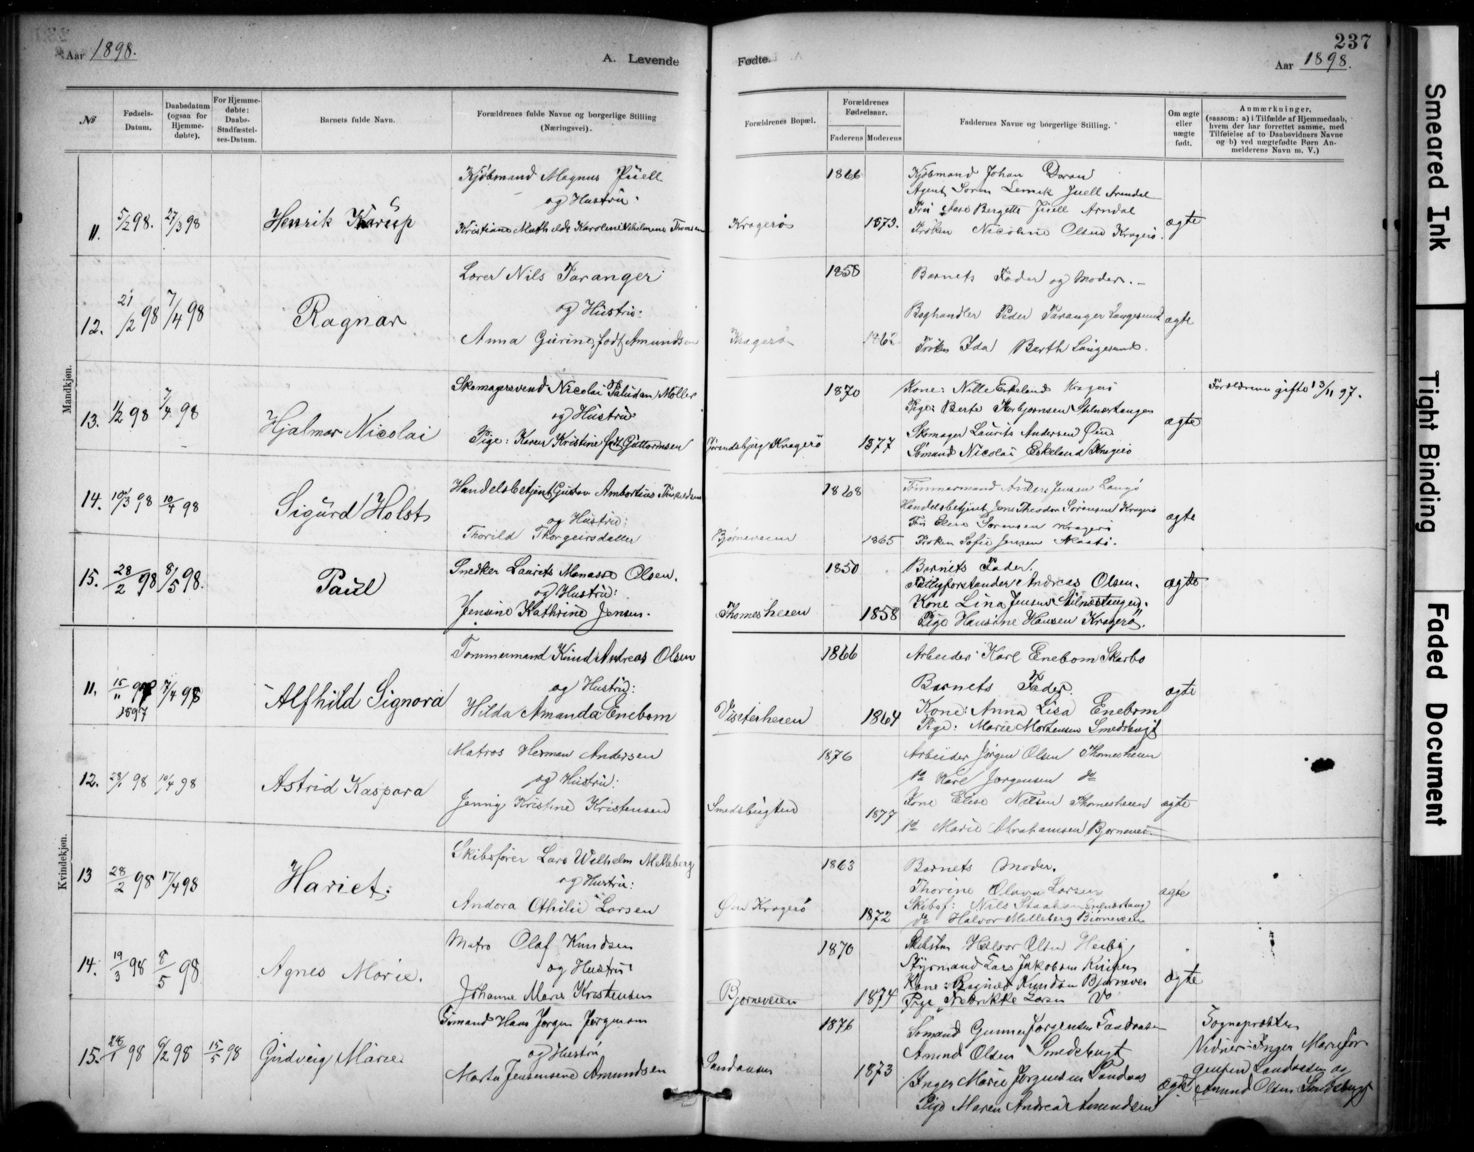 Aar 1898.
A. Levende
№
Fødsels-Datum.
Daabsdatum (ogsaa for Hjemme-døbte).
For Hjemme-døbte: Daabs-Stadfæstel-ses-Datum.
Barnets fulde Navn.
Forældrenes fulde Navne og borgerlige Stilling (Næringsvei).
Mandkjøn.
11. 5/2 98. 27/3 98
Henrik Kårup
Kjøbmand Magnus Juell
og Hustru:
12. 21/2 98 7/4 98
Ragnar
Lærer Nils Taranger
og Hustru:
Anna Gurine, født Amundsen
13. 1/2 98 7/4 98
Hjalmar Nicolai
Skomagersvend Nicolai Paludan Møller
og Hustru
Pige: Karen Kristine født Guttormsen
14. 10/3 98 10/4 98
Sigurd Holst
Handelsbetjent Gustav
og Hustru:
Thorild Thorgeirsdatter
15. 28/2 98 8/5 98.
Paul
Snedker Laurits Monasse Olsen.
og Hustru:
Jensine Kathrine Jensen.
Kvindekjøn.
11. 15/11 97 1897 7/4 98
Alfhild Signora
Tømmermand Knud Andreas Olsen
og Hustru:
Hilda Amanda Enebom
12. 28/1 98 10/4 98
Astrid Kaspara
Matros Herman Andersen
og Hustru:
Jenny Kristine Kristensen
13 28/2 98 17/4 98
Hariet.
Skibsfører Lars Wilhelm Melleberg
og Hustru:
Andora Othilie Larsen
14. 19/3 98 8/5 98
Agnes Marie.
Matro Olaf Knudsen
og Hustru
Johanne Marie Kristensen
15. 28/1 98 6/2 98 15/5 98
Gudveig Marie
Sømand Hans Jørgen Jørgensen
og Hustru
Marta Jensensene Amundsen
237
Fødte.
Aar 1898.
Forældrenes Bopæl.
Forældrenes Fødselsaar.
Faderens Moderens
Faddernes Navne og borgerlige Stilling.
Om ægte eller uægte født.
Anmærkninger,
(saasom: a) i Tilfælde af Hjemmedaab, hvem der har forrettet samme, med Tilføielse af to Daabsvidners Navne og b) ved uægtefødte Børn An-melderens Navn m. V.)
Kragerø
1866
1873.
Kjøbmand Johan Doran
Agent Søren Lemik Juell Arendal
Fru Aase Bergette Juell Arndal
Frøken Nicoline Olsen Kragerø.
ægte
Kragerø
1858
1862
Barnets Fader og Moder.
Boghandler Peder Taranger Langesund
Frøken Ida Barth Langesund.
ægte
Kragerø
1870
1877
Kone: Nille Eskeland Kragerø
Pige: Berte Torbjørnsen Stilnestangen
Skomager Laurits Andersen Øen
Sømand Nicolai Eskeland Kragerø
ægte
Forældrene gifte 13/11 97.
Bjørneveien
1868
1865
Tømmermand Anders Jensen Langø
Handelsbetjent Jens Theodor Sørensen Kragerø
Fru Elise Sørensen Kragerø
Frøken Sofie Jensen Skaatø.
ægte
Thomesheien
1850
1858
Barnets Fader.
Andreas Olsen.
Kone Lina Jensen Stilnestangen.
Pige Hansine Hansen Kragerø.
ægte
Visterheien
1866
1864
Arbeider Karl Enebom Skarbo
Barnets Fader.
Kone: Anna Lisa Enebom
Pige: Marie Mortensen Smedsbugt
ægte
Smedsbugten
1876
1877
Arbeider Jørgen Olsen Thomesheien
do Karl Jørgensen do
Kone Elise Nilsen Thomesheien
do Marie Abrahamsen Bjørnevei
ægte
Øen Kragerø
1863
1872
Barnets Moder.
Thorine Olava Larsen
Skibsf: Nils
do Halvor Melleberg Bjørneveien
ægte
Bjørneveien
1870
1874
Halvor Olsen Heibø
Styrmand Lars Jakobsen
Kone: Ragnild Knudsen Bjørnevei
Pige Fredrikke Larsen do
ægte
Sandaasen
1876
1873
Sømand Gunner Jørgensen Sandaasen
Amund Olsen Smedsbugt
Inger Marie Jørgensen Sandaas
Pige Maren Andrea Amundsen
ægte
Sognepræsten
Vidner: Inger Marie Jør
gensen Sandaasen og
Amund Olsen Smedsbugt
Smeared Ink
Tight Binding
Faded Document